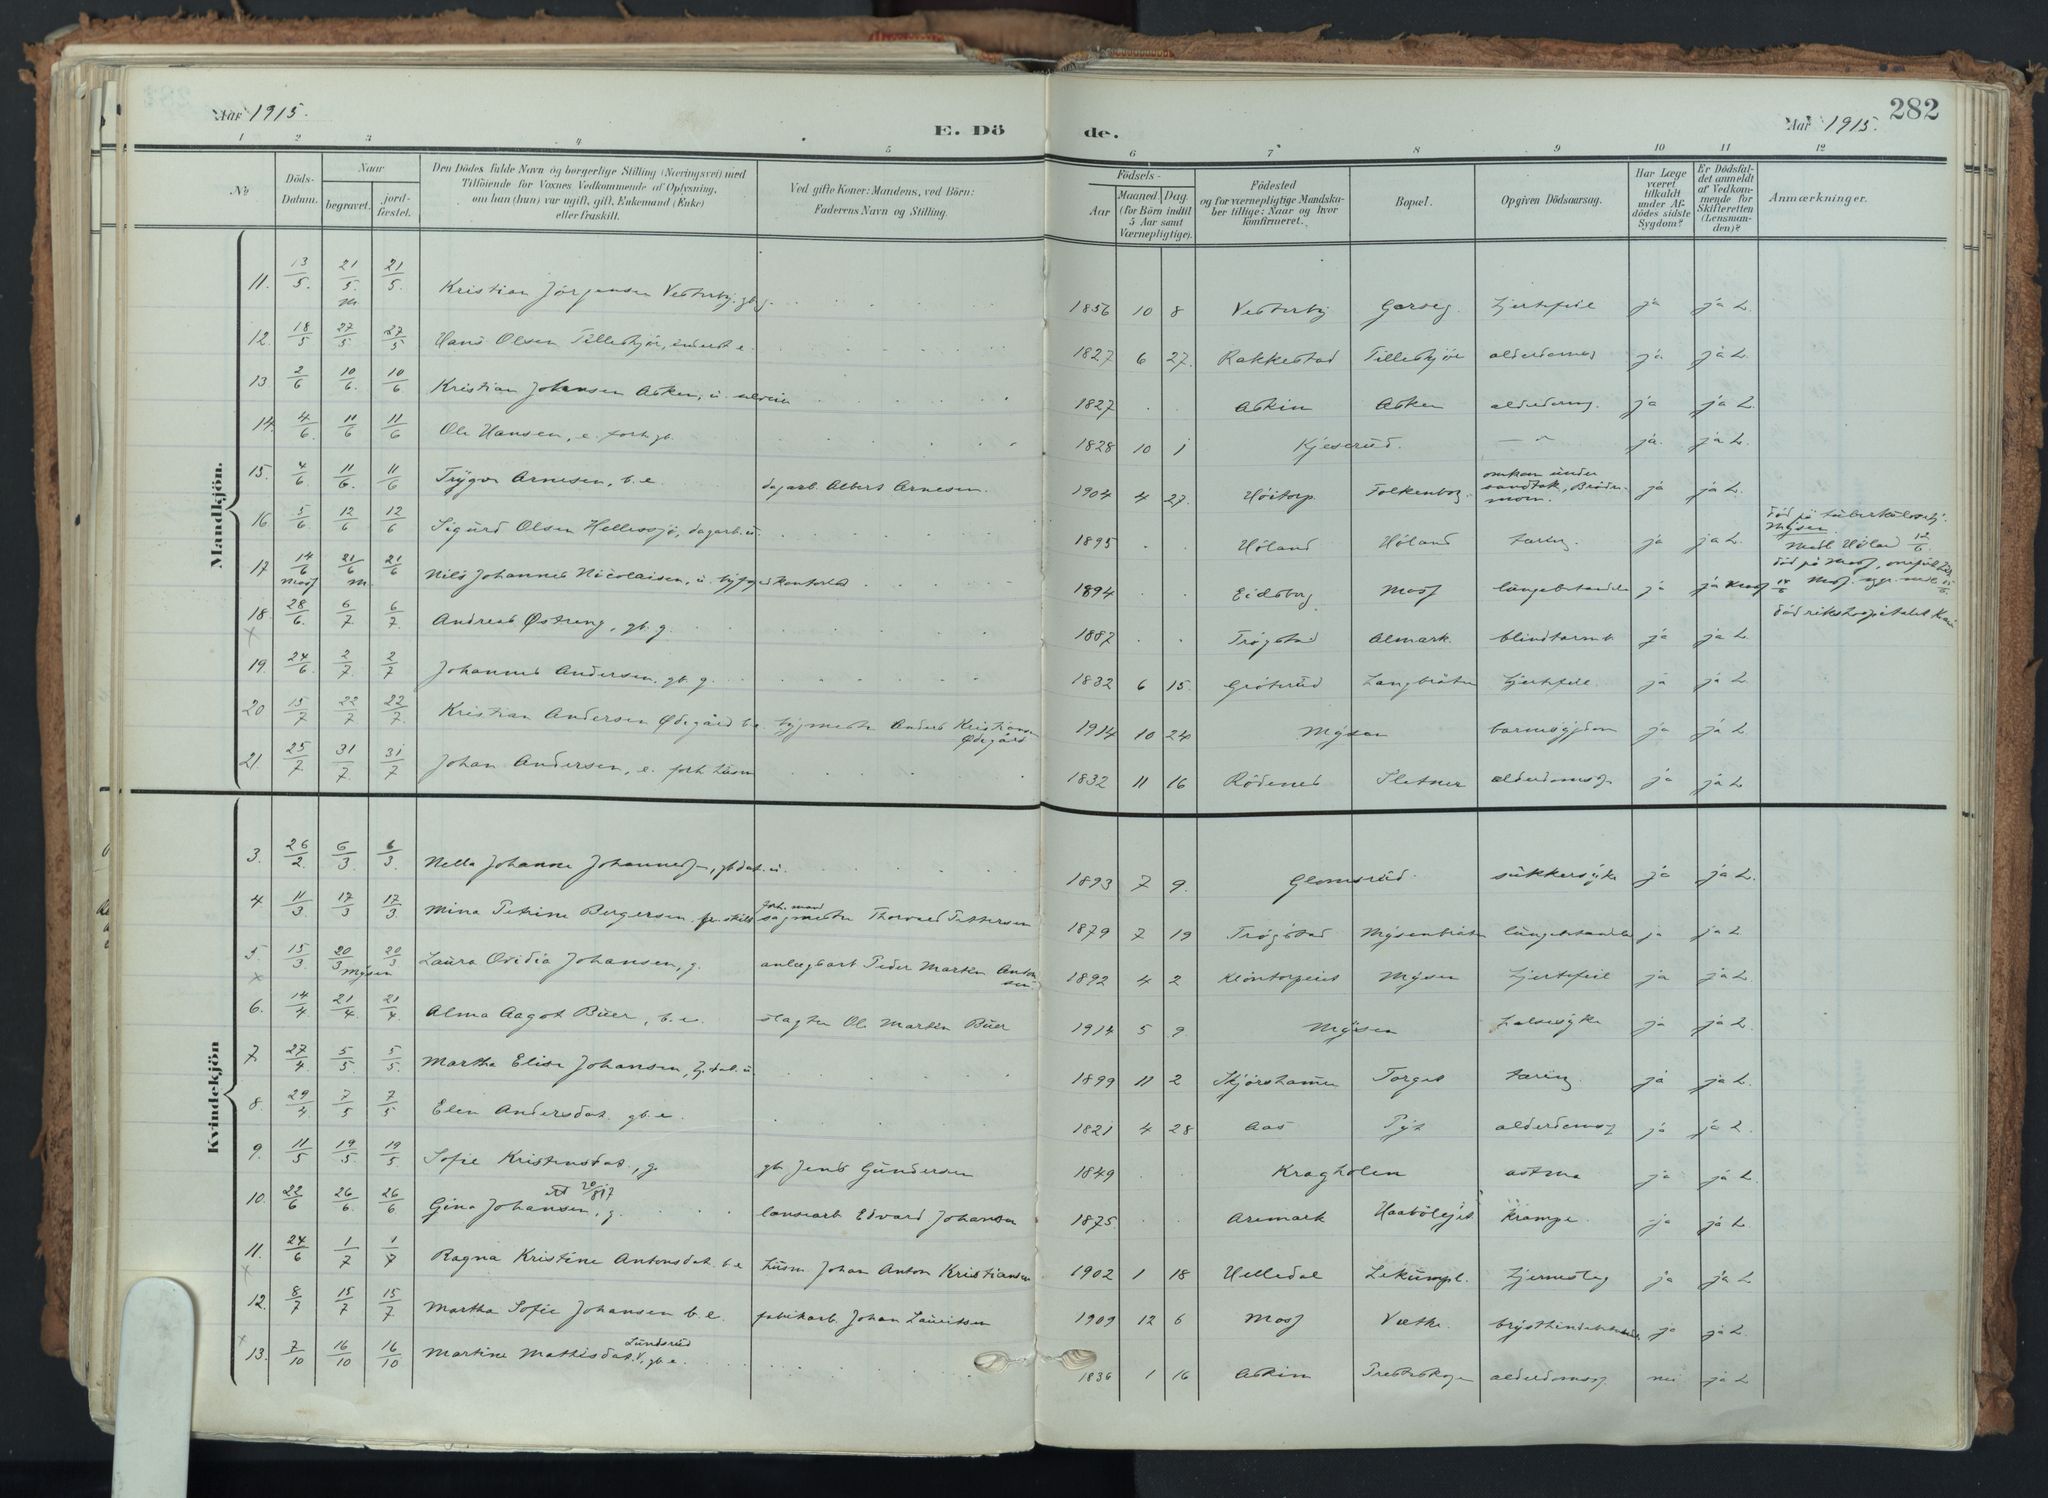 Aar 1915.
E. Dö
de.
Aar 1915.
282
1 2 3 4 5 6 7 8 9 10 11 12
No
Döds-
Datum.
Naar
begravet.
jord-
fæstet.
Den Dödes fulde Navn og borgerlige Stilling (Næringsvei) med
Tilföiende for Voxnes Vedkommende af Oplysning,
om han (hun) var ugift, gift, Enkemand (Enke)
eller fraskilt.
Ved gifte Koner: Mandens, ved Börn:
Faderens Navn og Stilling.
Födsels-
Aar
Maaned.
Dag.
(for Börn indtil
5 Aar samt
Værnepligtige).
Födested
og for værnepligtige Mandska-
ber tillige: Naar og hvor
konfirmeret.
Bopæl.
Opgiven Dödsaarsag.
Har Læge
været
tilkaldt
under Af-
dödes sidste
Sygdom?
Er Dödsfal-
det anmeldt
af Vedkom-
mende for
Skifteretten
(Lensman-
den)?
Anmærkninger.
Mandkjön.
11. 13/5. 21/5. m 21/5. Kristian Jörgensen Vesterby. gb. g. 1856 10 8 Vesterby Garseg. hjertefeil ja ja L.
12. 18/5 27/5 27/5 Hans Olsen Tilleskjör, inderst e. 1827 6 27. Rakkestad Tilleskjör alderdomsg ja ja L.
13. 2/6 10/6. 10/6 Kristian Johansen Asken, u. 1827 . . Askim Asken alderdomsg. ja ja L.
14. 4/6. 11/6 11/6 Ole Hansen, e. forh. gb. 1828 10 1 Kjeserud. — " ja. ja L.
15. 4/6. 11/6. 11/6 Trygve Arnesen, b. e. dagarb. Albert Arnesen. 1904 4 27. Höitorp. Folkenborg. omkom under
sandtak, ja ja L.
16 5/6 12/6 12/6 Sigurd Olsen Hellessjö, dagarb. u. 1895 . . Höland Höland tæring. ja ja L. död på
Mysen.
Medl Höland 12/6.
17 14/6 Moss 21/6 m. 21/6 Nils Johannes Nicolaisen, u. 1894 . . Eidsberg Moss lungebetændelse ja ja Moss död på Moss,
18. 28/6. 6/7. 6/7. Andreas Østreng, gb. g. 1887 . . Trögstad Almark. blindtarmb. ja ja L. död rikshospitalet
19. 24/6 2/7 2/7 Johannes Andersen, gb. g. 1832 6 15. Gröterud Langbråten hjertefeil. ja ja L.
20 15/7 22/7 22/7. Kristian Andersen Ødegård b. e. bygmester Anders Kristiansen
Ødegård 1914 10 24 Mysen barnesygdom ja ja L.
21. 25/7. 31/7. 31/7 Johan Andersen, e. forh. husm 1832 11 16 Rödenes Sletner alderdomsg ja ja L.
Kvindekjön
3. 26/2. 6/3 6/3. Nella Johanne Johannesen, gb dat. u. 1893 7 9. Glomsrud. sukkersyke ja ja L.
4 11/3 17/3 17/3 Mina Petrine Bergersen. fr. skilt forh. mand
sagmester Thorvald Pettersen 1879 7 19 Trögstad Mysenbråten lungebetændelse ja ja L.
5 x 15/3. 20/3 Mysen 20/3 Laura Ovidia Johansen, g. anlægsarb Peder Marten Anton
sen. 1892 4 2 Mysen hjertefeil ja ja L.
6. 14/4. 21/4. 21/4. Alma Aagot Buer, b. e. slagter Ole Martin Buer 1914 5 9. Mysen halssyke ja ja L.
7 27/4 5/5 5/5. Martha Elise Johansen, h. dat. u. 1899 11 2 Skjörshammer Torget tæring ja ja L.
8. 29/4 7/5 7/5 Elen Andersdat. gb. e. 1821 4 28 Aas alderdomsg ja ja L.
9. 11/5 19/5. 19/5 Sofie Kristensdat., g. gb. Jens Gundersen 1849 . Kragholen astma ja ja L.
10. 22/6 26/6. 26/6 Gina Johansen, g. 20/8 17 Edvard Johansen 1875 . . Aremark krampe. ja ja L
11. 24/6 1/7 1/7 Ragna Kristine Antonsdat. b. e husm Johan Anton Kristiansen 1902 1 18 Helledal Lekumpl. hjerneslag ja ja L.
12. 8/7 15/7 15/7 Martha Sofie Johansen b. e. fabrikarb. Johan Lauritsen 1909 12 6 Moss ja ja L.
13. 7/10 16/10 16/10 Martine Mathisdat. Lundsrud v, gb. e. 1836 1 16 Askim alderdomsg. nei ja L